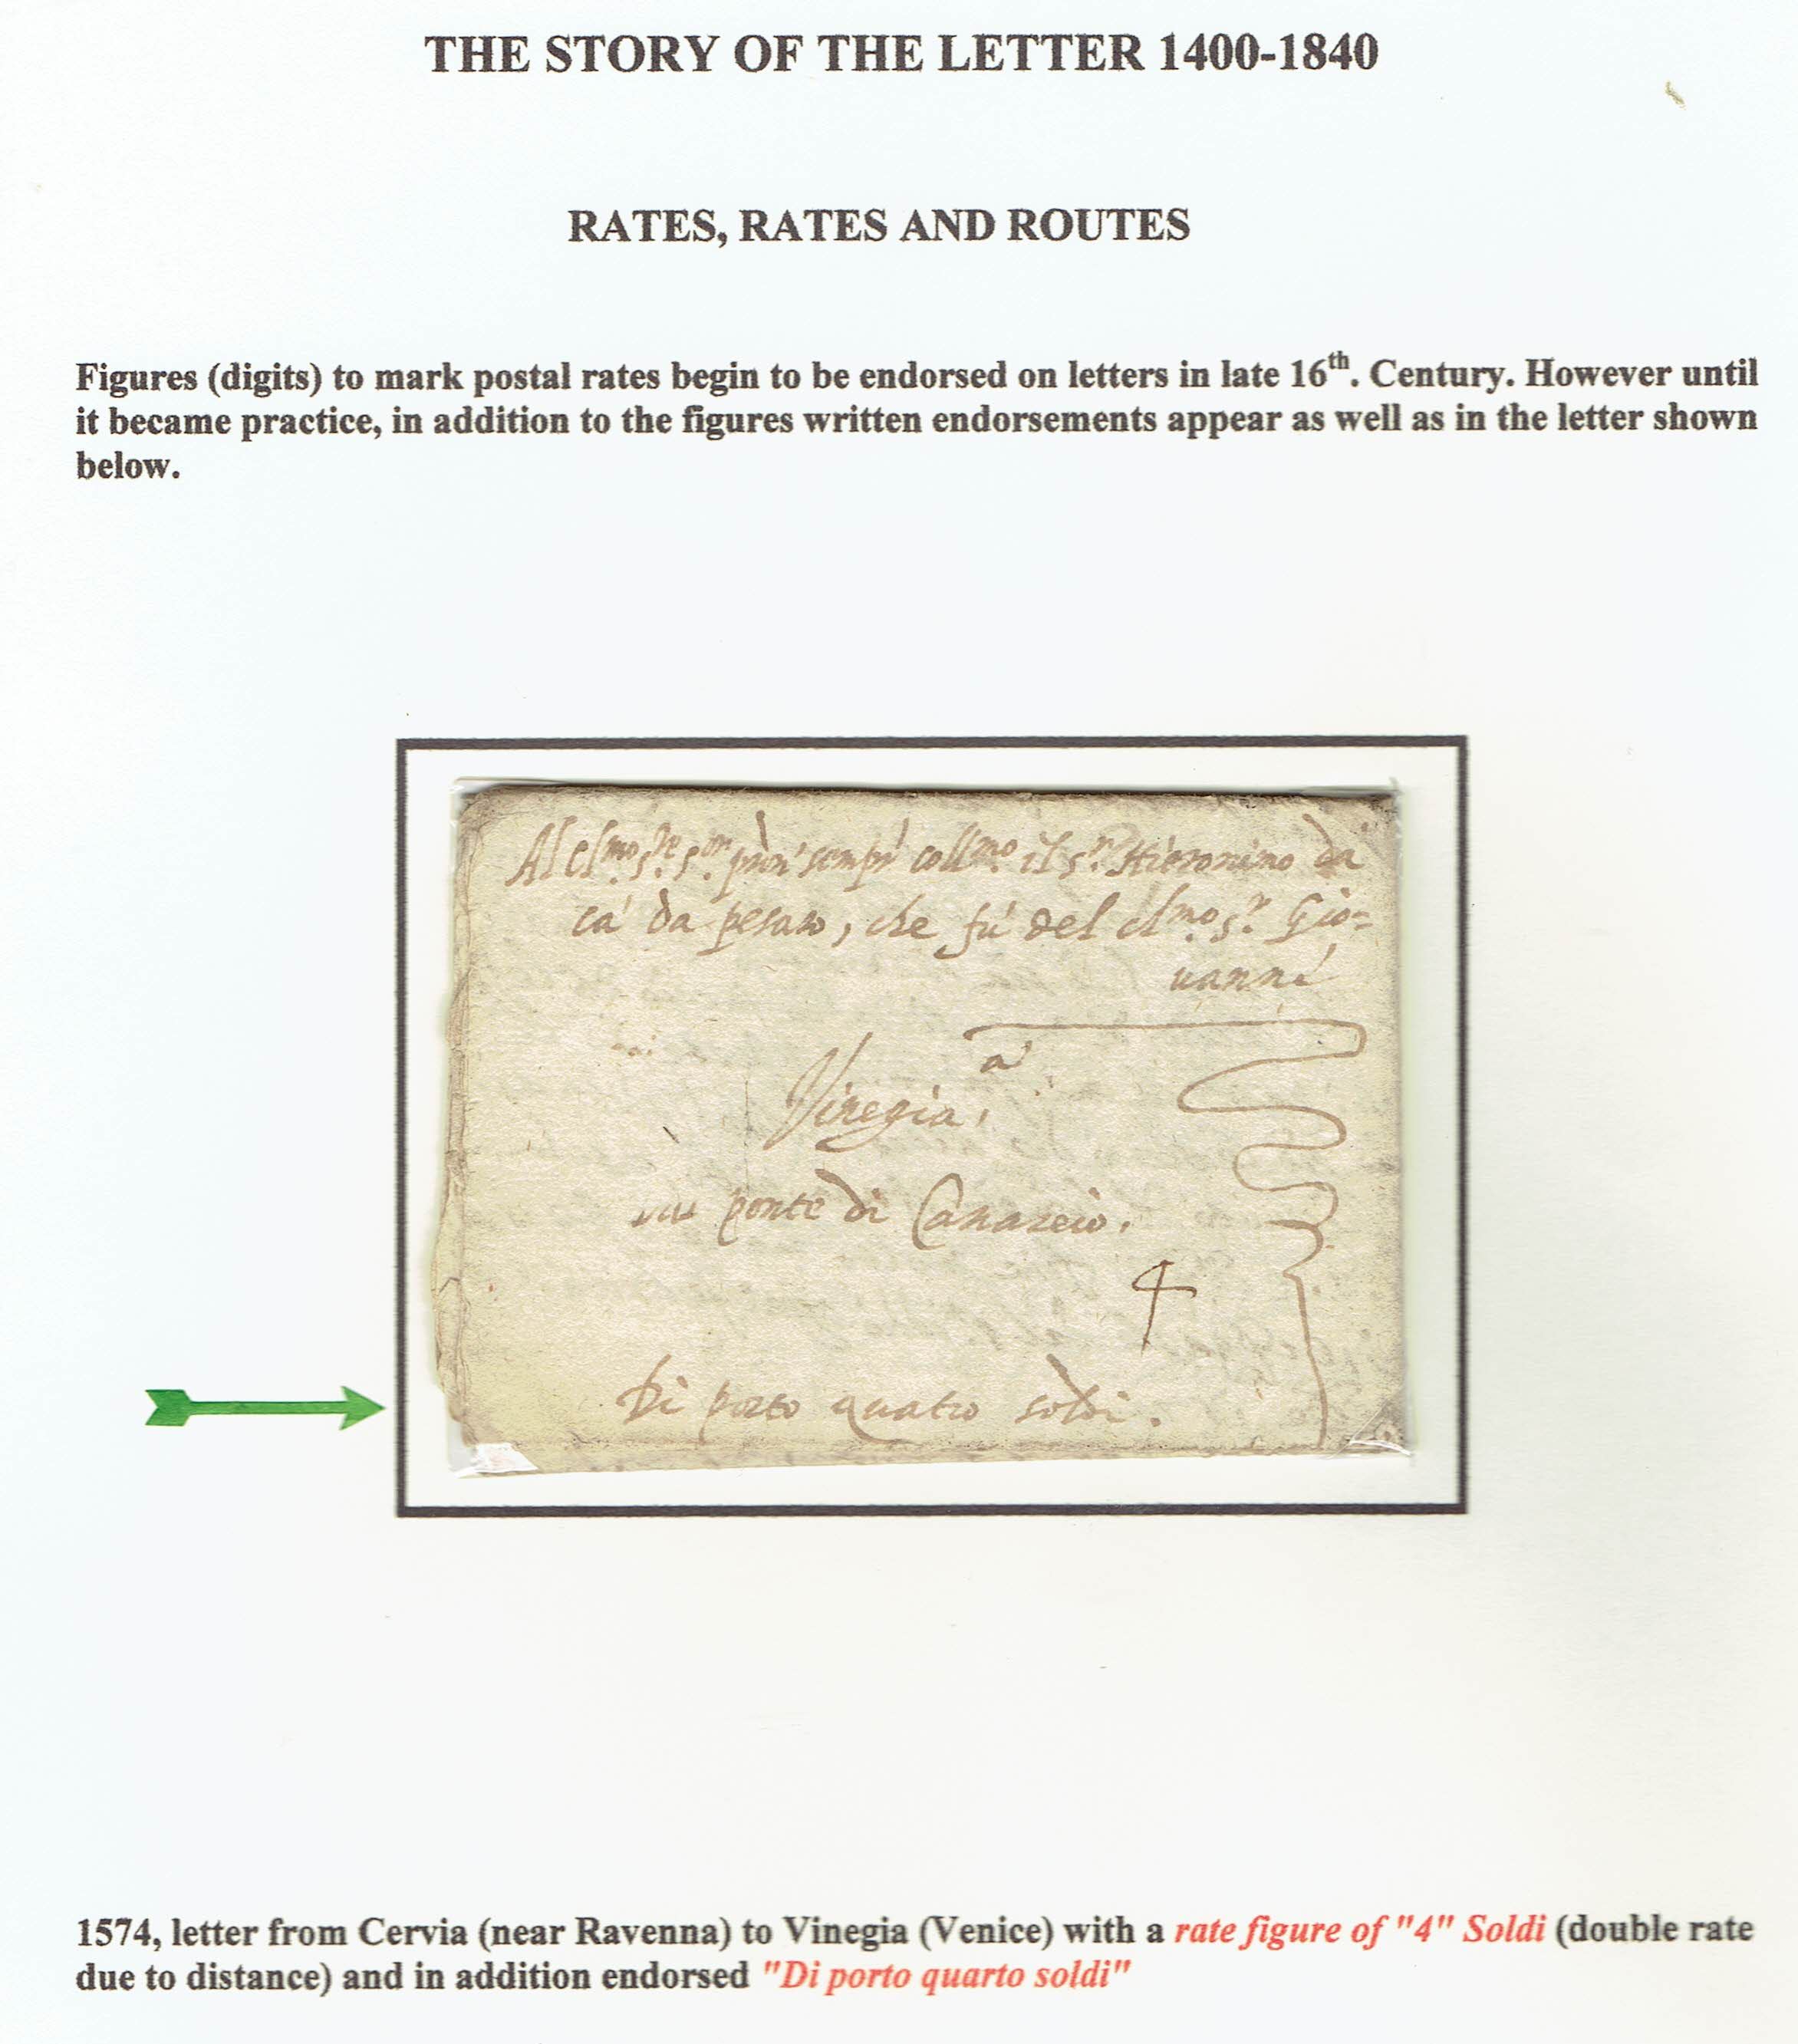 THE STORY OF THE LETTER 1400-1840
RATES, RATES AND ROUTES
Figures (digits) to mark postal rates begin to be endorsed on letters in late 16th. Century. However until
it became practice, in addition to the figures written endorsements appear as well as in the letter shown
below.
Al cl.mo s.re s.or sempr' coll.mo il s.r Hieronimo da
ca' da pesaro, che fù del cl.mo s.r Gio=
uanni
a
Vinegia.
ponte di Canareio.
4
Di porto quatro soldi.
1574, letter from Cervia (near Ravenna) to Vinegia (Venice) with a rate figure of "4" Soldi (double rate
due to distance) and in addition endorsed "Di porto quarto soldi"